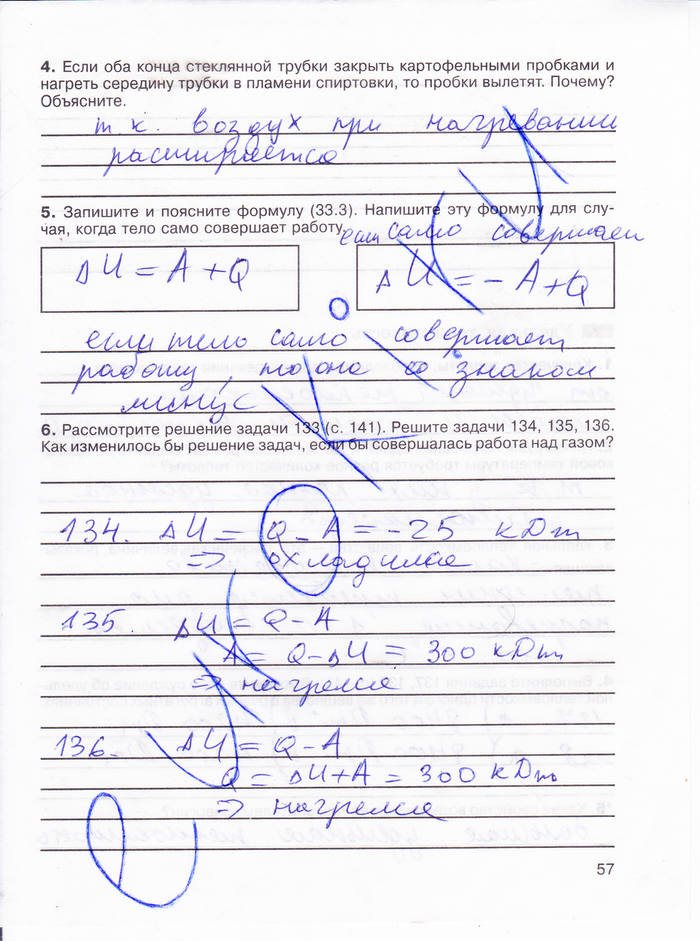 4. Если оба конца стеклянной трубки закрыть картофельными пробками и
нагреть середину трубки в пламени спиртовки, то пробки вылетят. Почему?
Объясните.
т к. воздух при нагревании
расширяется
5. Запишите и поясните формулу (33.3). Напишите эту формулу для слу-
чая, когда тело само совершает работу.
если само совершает
ΔU = A + Q
ΔU = - A + Q
если тело само совершает
работу, то оно со знаком
минус
6. Рассмотрите решение задачи 133 (с. 141). Решите задачи 134, 135, 136.
Как изменилось бы решение задач, если бы совершалась работа над газом?
134. ΔU = Q - A = -25 кДж
=> охладился
135. ΔU = Q - A
A = Q - ΔU = 300 кДж
=> нагрелся
136. ΔU = Q - A
Q = ΔU + A = 300 кДж
=> нагрелся
57